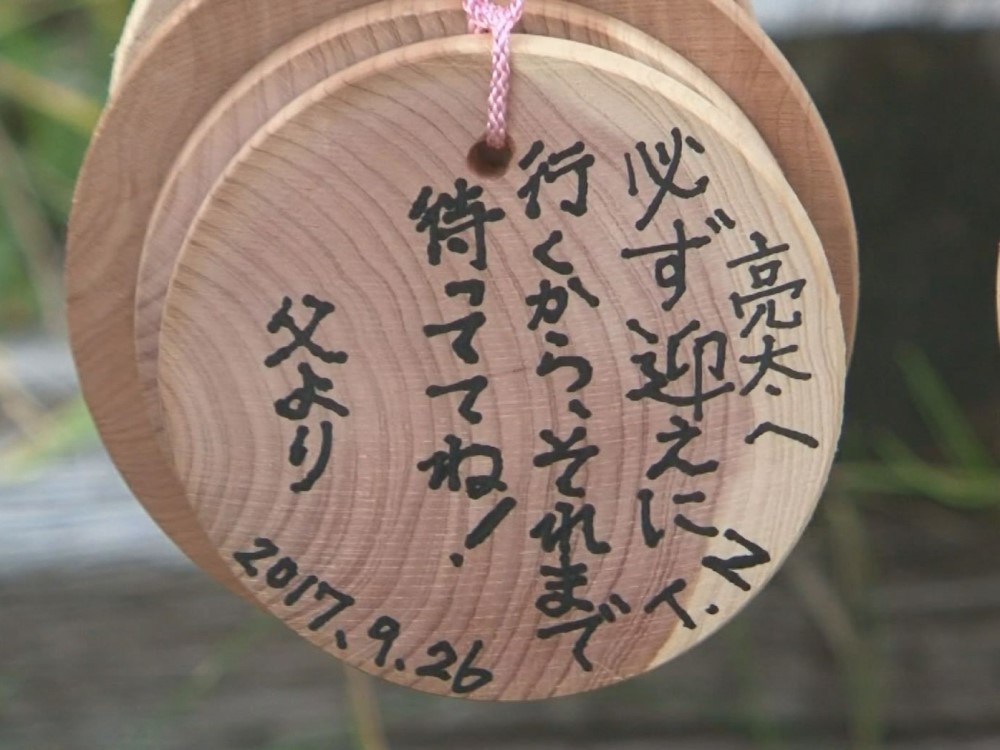 亮太へ
必ず迎えに
行くから、それまで
待っててね!
父より
2017.9.26
T.N